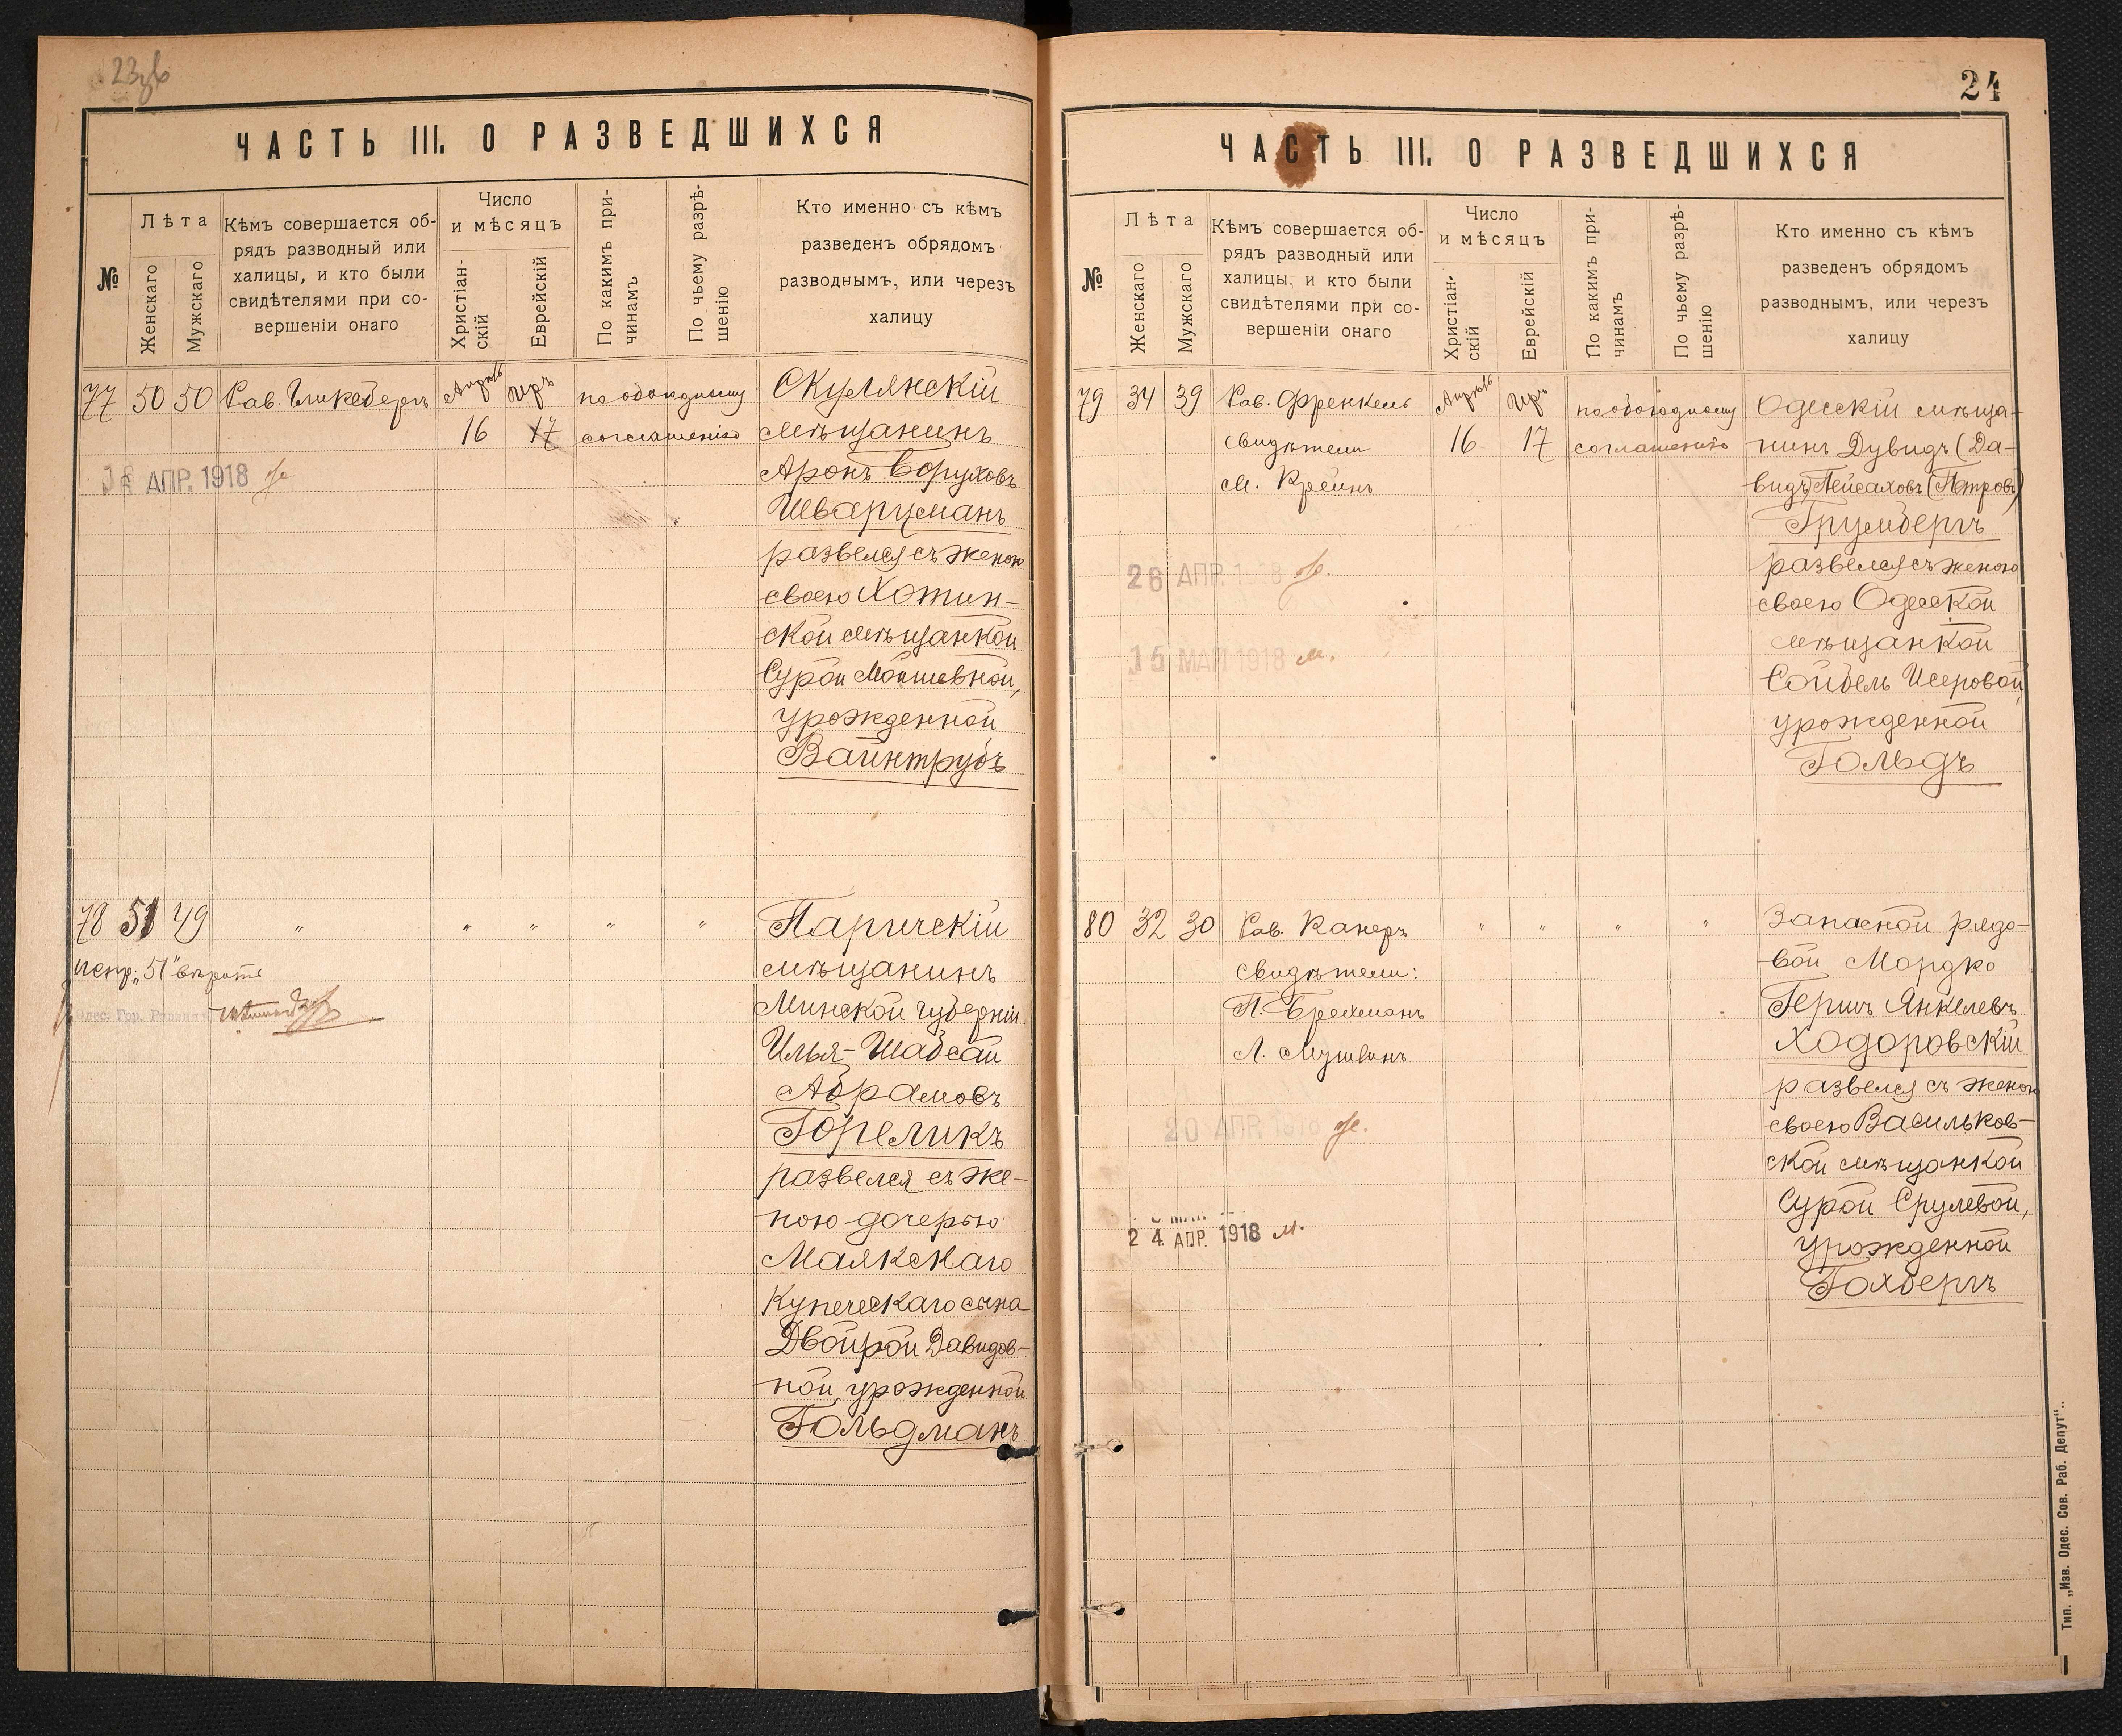 ЧАСТЬ III. О РАЗВЕДШИХСЯ
№
Лѣта
Женскаго
Мужскаго
Кѣмъ совершается об-
рядъ разводный или
халицы, и кто были
свидѣтелями при со-
вершеніи онаго
Число
и мѣсяцъ
Христіан-
скій
Еврейскій
По какимъ при-
чинамъ
По чьему разрѣ-
шенію
Кто именно съ кѣмъ
разведенъ обрядомъ
разводнымъ, или черезъ
халицу
77 50 50 Рав. Апрѣль Иръ по обоюдному
16 17 соглашенію
АПР. 1918
Скулянскій
мѣщанинъ
Аронъ Боруховъ
Шварцманъ
развелся съ женою
своею Хотин-
ской мѣщанкой
Сурой Мошевной,
урожденной
Вайнтрубъ
78 51 49 " " " " "
испр. „51" вѣрить
Паричскій
мѣщанинъ
Минской губерніи
Илья-Шабсай
Абрамовъ
Гореликъ
развелся съ же-
ною дочерью
Маякскаго
купеческаго сына
Двойрой Давидов-
ной, урожденной
Гольдманъ
24
ЧАСТЬ III. О РАЗВЕДШИХСЯ
№
Лѣта
Женскаго
Мужскаго
Кѣмъ совершается об-
рядъ разводный или
халицы, и кто были
свидѣтелями при со-
вершеніи онаго
Число
и мѣсяцъ
Христіан-
скій
Еврейскій
По какимъ при-
чинамъ
По чьему разрѣ-
шенію
Кто именно съ кѣмъ
разведенъ обрядомъ
разводнымъ, или черезъ
халицу
79 34 39 Рав. Френкель Апрѣль Иръ по обоюдному
свидѣтели 16 17 соглашенію
М. Крейнъ
26 АПР.
15 МАЙ 1918 м.
Одесскій мѣща-
нинъ Дувидъ (Да-
видъ) Пейсаховъ (Петровъ)
Грумбергъ
развелся съ женою
своею Одесской
мѣщанкой
Сойбель Исеровой,
урожденной
Гольдъ
80 32 30 Рав. Канеръ " " " "
свидѣтели:
П. Брехманъ
Л.
20 АПР. 1918
24 АПР. 1918 м.
Запасной рядо-
вой Мордко
Гершъ Янкелевъ
Ходоровскій
развелся съ женою
своею Васильков-
ской мѣщанкой
Сурой Срулевой,
урожденной
Гохбергъ
Тип. „Изв. Одес. Сов. Раб. Депут"..